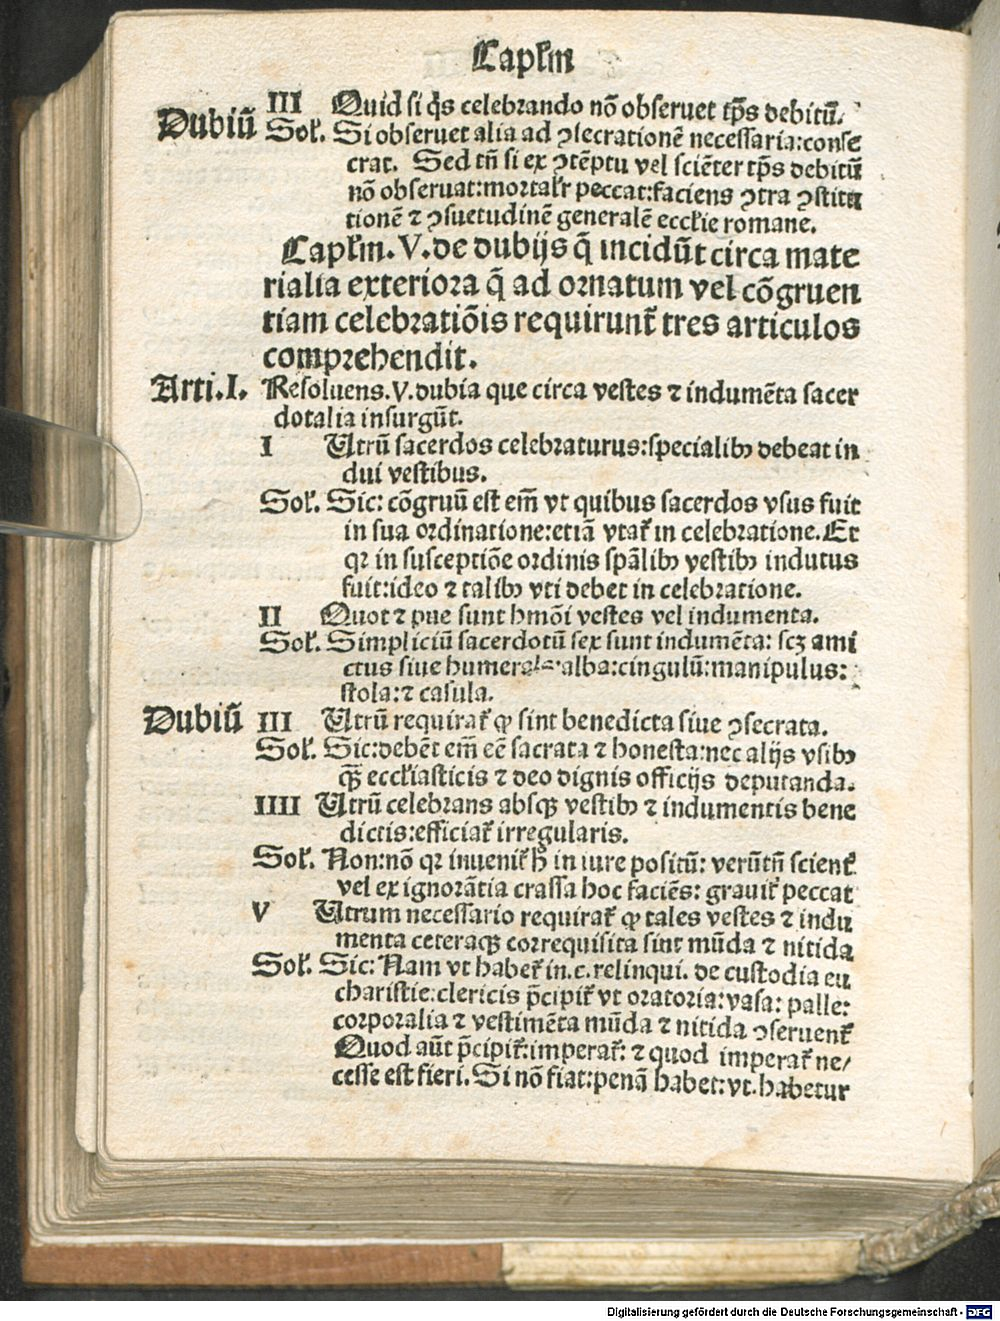 Caplʼm
III Quid si qͥs celebrando nō obseruet tp̄s debitū.
Dubiū Solʼ. Si obseruet alia ad ↄsecrationē necessaria:conse
crat. Sed tn̄ si ex ↄtēptu vel sciēter tp̄s debitū
nō obseruat:mortalʼr peccat:faciens ↄtra ↄstitu
tionē ⁊ ↄsuetudinē generalē eccłie romane.
Caplʼm. V. de dubijs q̄ incidūt circa mate
rialia exteriora q̄ ad ornatum vel cōgruen
tiam celebratiōis requirunt᷑ tres articulos
comprehendit.
Arti.I. Resoluens.V.dubia que circa vestes ⁊ indumēta sacer
dotalia insurgūt.
I Utrū sacerdos celebraturus:specialibꝫ debeat in
dui vestibus.
Solʼ. Sic: cōgruū est em̄ vt quibus sacerdos vsus fuit
in sua ordinatione:etiā vtat᷑ in celebratione.Et
qꝛ in susceptiōe ordinis spālibꝫ vestibꝫ indutus
fuit:ideo ⁊ talibꝫ vti debet in celebratione.
II Quot ⁊ que sunt hmōi vestes vel indumenta.
Solʼ. Simpliciū sacerdotū sex sunt indumēta: scꝫ ami
ctus siue humerale:alba:cingulū:manipulus:
stola:⁊ casula.
Dubiū III Utrū requirat᷑ ꝙ sint benedicta siue ↄsecrata.
Solʼ. Sic:debēt em̄ eē sacrata ⁊ honesta:nec alijs vsibꝫ
qꝫ̄ eccłiasticis ⁊ deo dignis officijs deputanda.
IIII Utrū celebrans absqꝫ vestibꝫ ⁊ indumentis bene
dictis:efficiat᷑ irregularis.
Solʼ. Non:nō qꝛ inuenit᷑ ħ in iure positū: verūtn̄ scient᷑
vel ex ignorātia crassa hoc faciēs: grauit᷑ peccat
V Utrum necessario requirat᷑ ꝙ tales vestes ⁊ indu
menta ceteraqꝫ correquisita sint mūda ⁊ nitida
Solʼ. Sic: Nam vt habet᷑ in.c.relinqui. de custodia eu
charistie:clericis p̄cipit᷑ vt oratoria:vasa: palle:
corporalia ⁊ vestimēta mūda ⁊ nitida ↄseruent᷑
Quod aūt p̄cipit᷑:imperat᷑: ⁊ quod imperat᷑ ne/
cesse est fieri. Si nō fiat:penā habet:vt.habetur
Digitalisierung gefördert durch die Deutsche Forschungsgemeinschaft - DFG